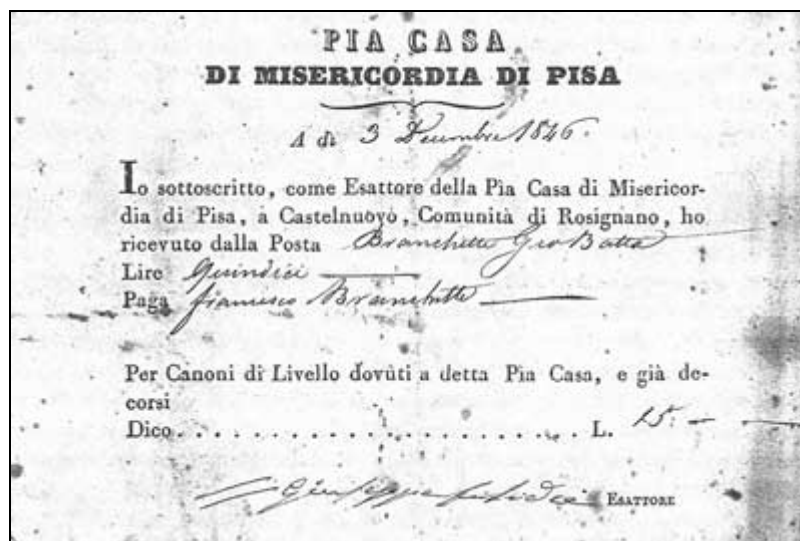 PIA CASA
DI MISERICORDIA DI PISA
A dì 3 Decembre 1846.
Io sottoscritto, come Esattore della Pia Casa di Misericor-
dia di Pisa, a Castelnuovo, Comunità di Rosignano, ho
ricevuto dalla Posta Branchetti Gio Batta
Lire Quindici
Paga francesco Branchetti
Per Canoni di Livello dovùti a detta Pia Casa, e già de-
corsi
Dico . . . . . . . . . . . . . . . . . . . . . . . . . . . . L. 15. -
Giuseppe ESATTORE